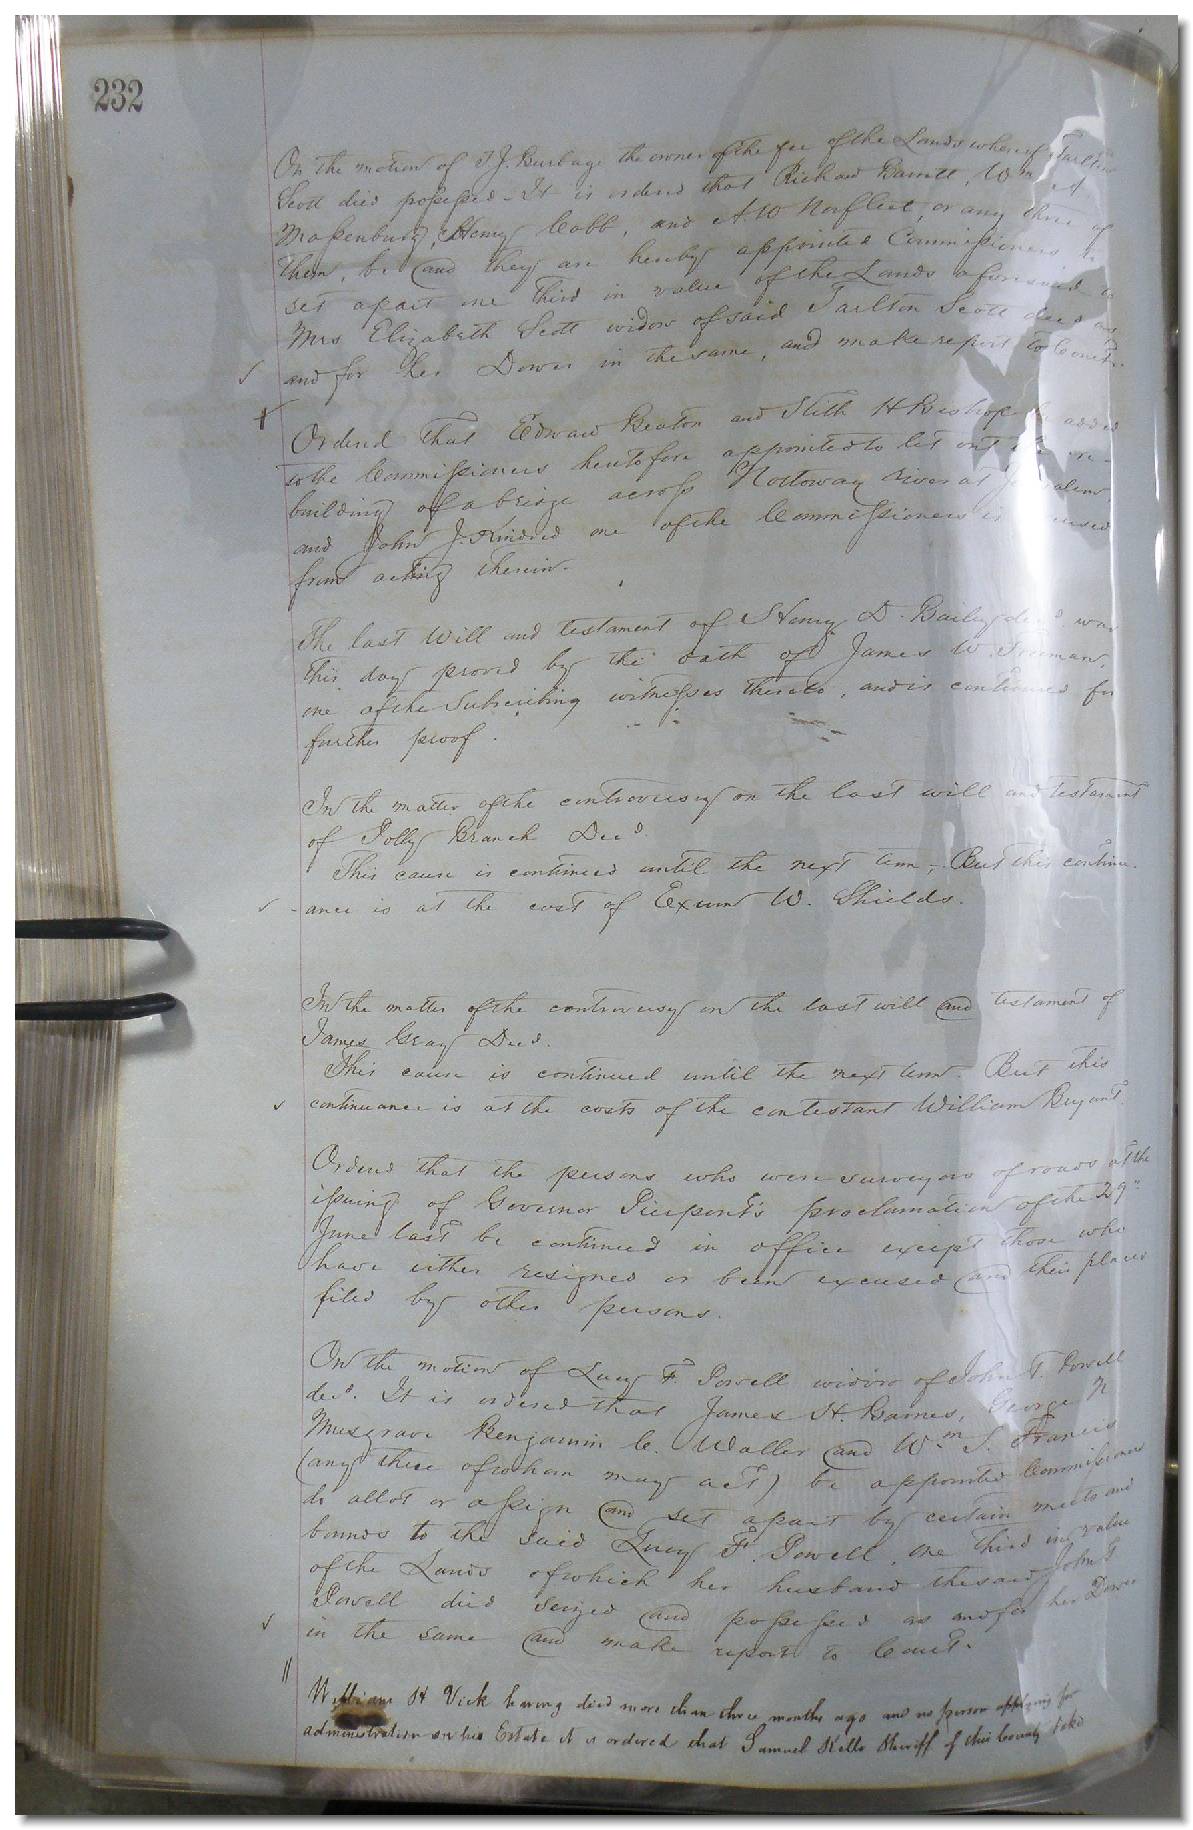 232
On the motion of T. J. Burbage the owner of the fee of the Lands whereof Tarlton
Scott died possessed - It is ordered that Richard Barrett, Wm A.
Massenburg, Henry Cobb, and A. W Norfleet, or any three of
them, be and they are hereby appointed Commissioners to
set apart one third in value of the Lands aforesaid to
Mrs Elizabeth Scott widow of said Tarlton Scott decd as
and for her Dower in the same, and make report to Court.
Ordered that Edward Beaton and Stith H Bishop be added
to the Commissioners heretofore appointed to let out the re-
building of a bridge across Nottoway river at Jerusalem,
and John J. Kindred one of the Commissioners is excused
from acting therein.
The last Will and testament of Henry D. Bailey decd was
this day proved by the oath of James W. Freeman,
one of the Subscribing witnesses thereto, and is continued for
further proof.
In the matter of the controversy on the last will and testament
of Polly Branch Decd.
This cause is continued until the next term; But this continu-
-ance is at the cost of Exum W. Shields.
In the matter of the controversy on the last will and testament of
James Gray Decd.
This cause is continued until the next term. But this
continuance is at the costs of the contestant William Bryant.
Ordered that the persons who were surveyors of roads at the
issuing of Governor Pierpont's proclamation of the 29"
June last be continued in office except those who
have either resigned or been excused and their places
filed by other persons.
On the motion of Lucy F. Powell widow of John T. Powell
decd. It is ordered that James H. Barnes, George N
Musgrave Benjamin C. Waller and Wm S. Francis
(any three of whom may act) be appointed Commissioners
to allot or assign and set apart by certain meets and
bounds to the said Lucy F. Powell, one third in value
of the Lands of which her husband the said John T
Powell died seized and possessed as and for her Dower
in the same and make report to Court.
William H Vick having died more than three months ago and no person applying for
administration on his Estate it is ordered that Samuel Kello Sheriff of this County take